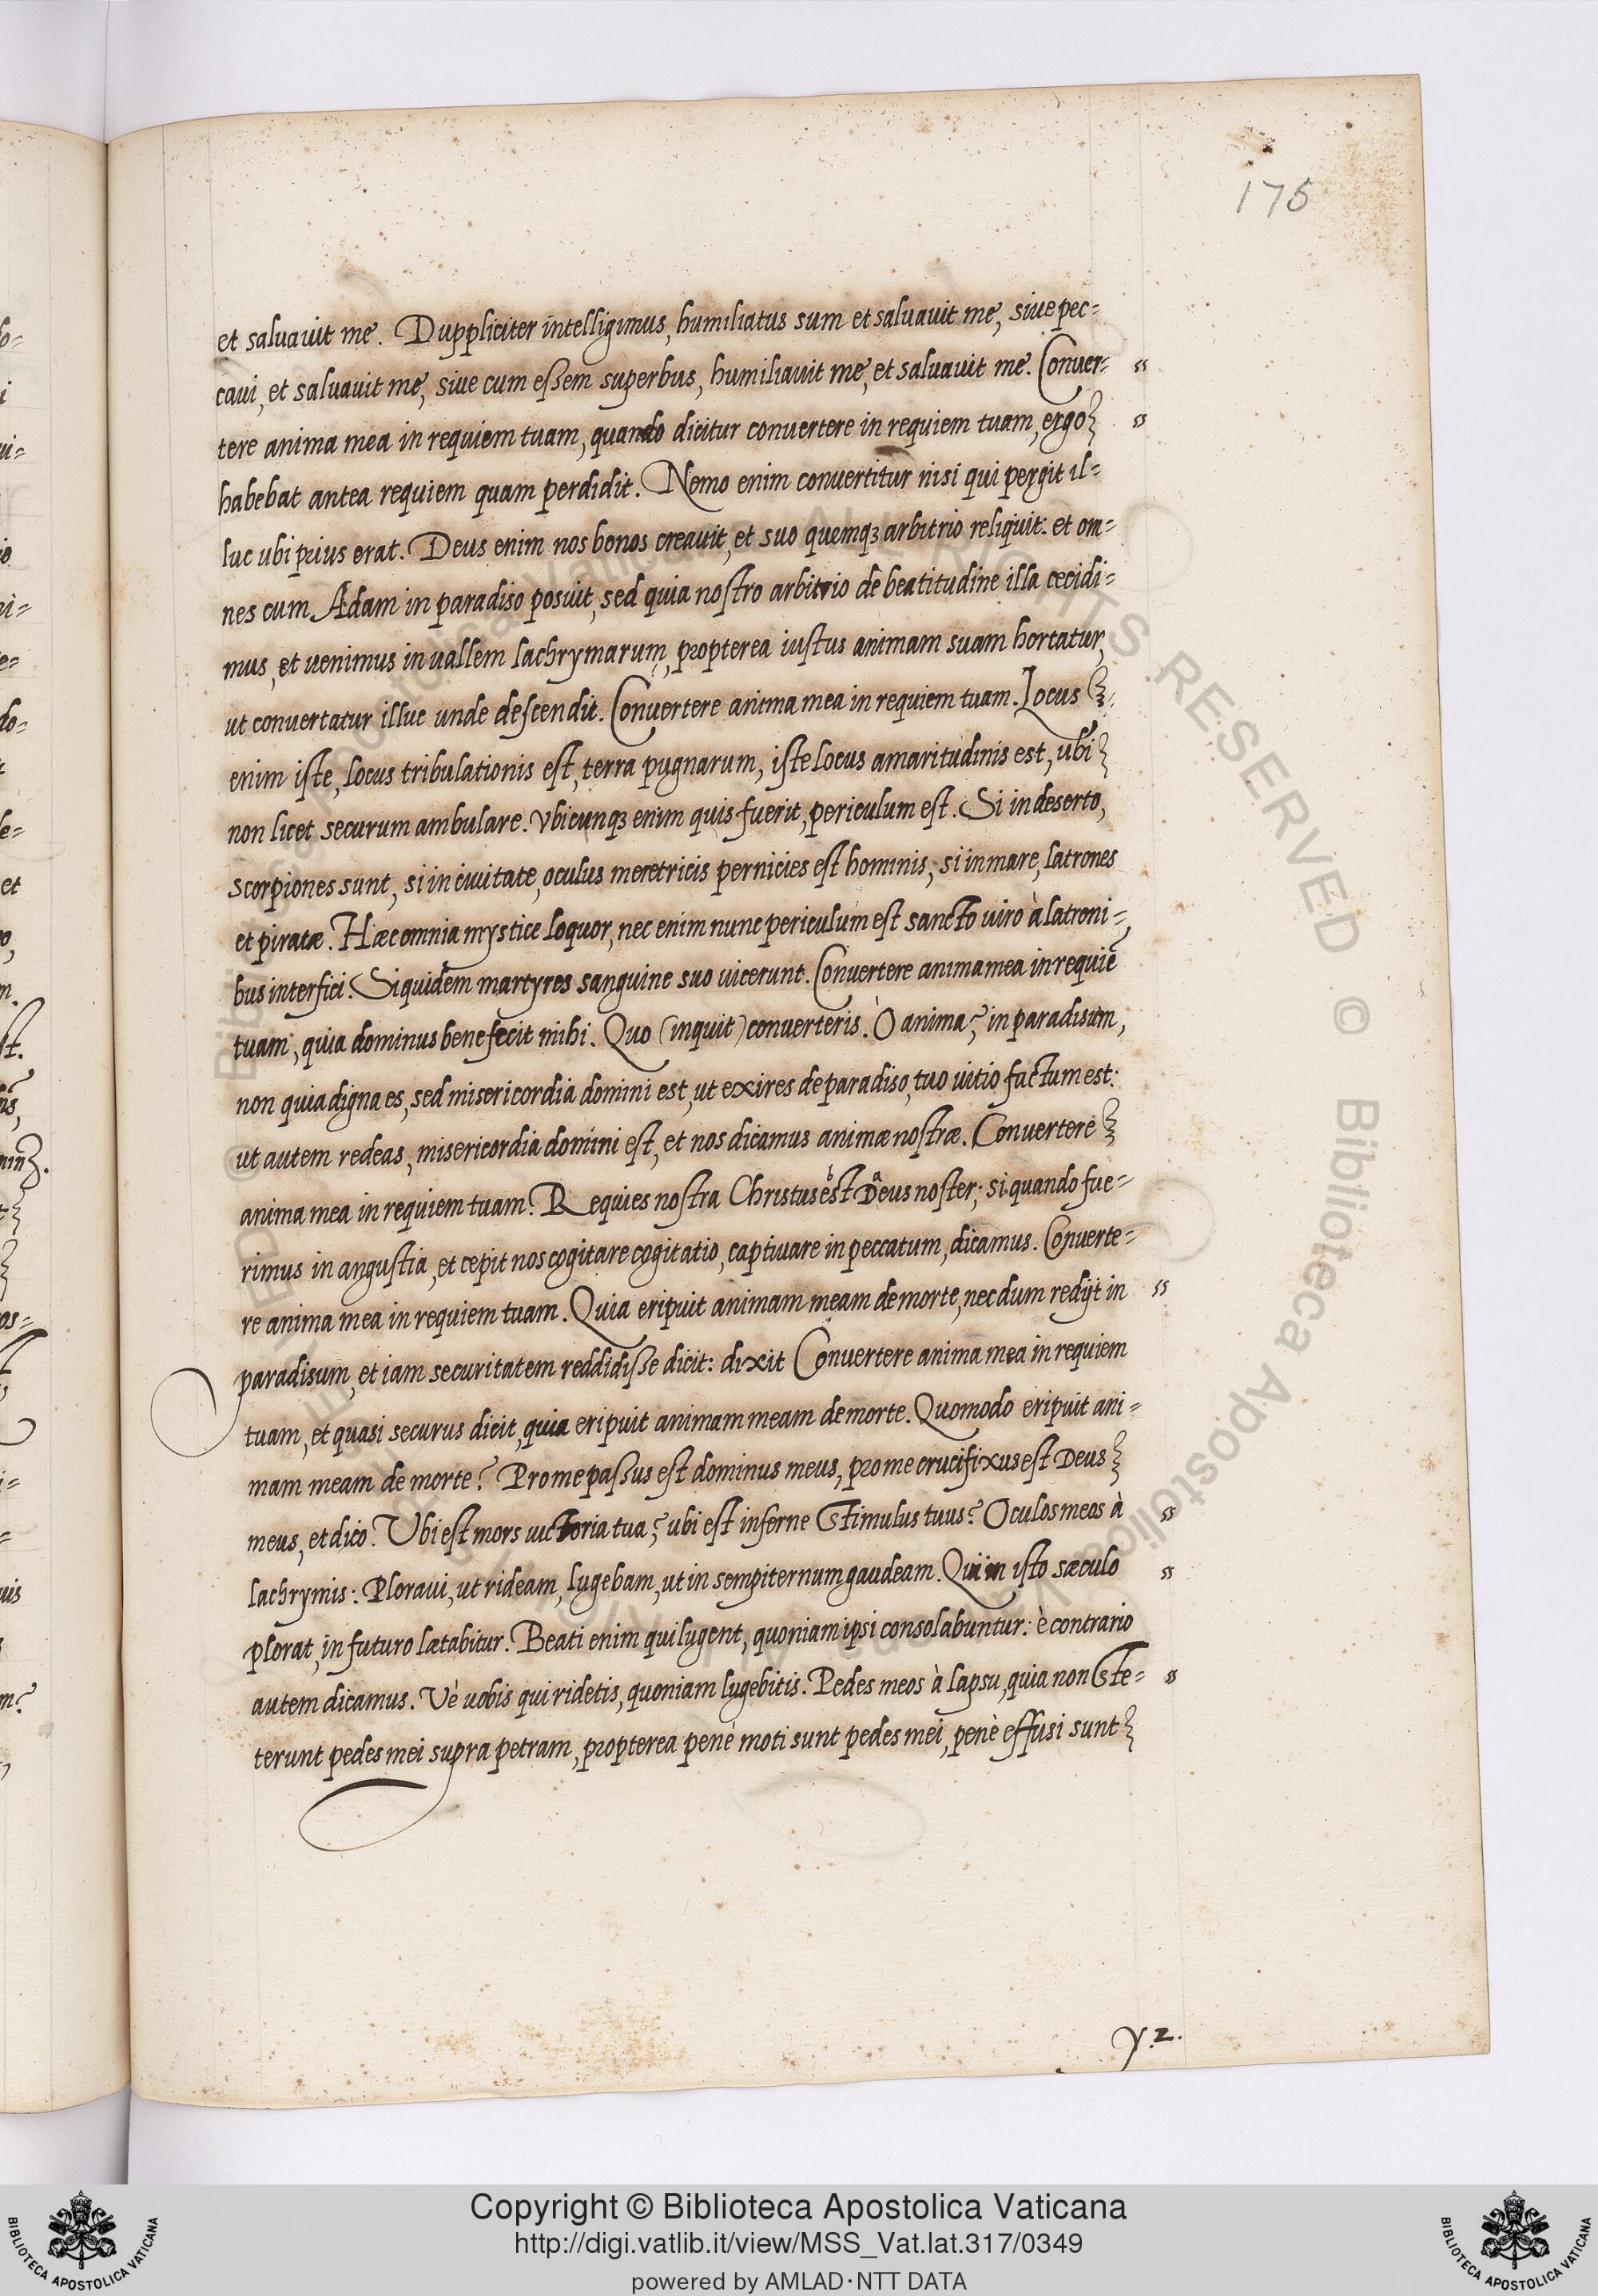 175
et saluauit me. Duppliciter intelligimus, humiliatus sum et saluauit me, siue pec=
caui, et saluauit me, siue cum essem superbus, humiliauit me, et saluauit me. Conuer=
tere anima mea in requiem tuam, quando dicitur conuertere in requiem tuam, ergo
habebat antea requiem quam perdidit. Nemo enim conuertitur nisi qui pergit il=
luc ubi prius erat. Deus enim nos bonos creauit, et suo quemqꝫ arbitrio reliquit: et om=
nes cum Adam in paradiso posuit, sed quia nostro arbitrio de beatitudine illa cecidi=
mus, et uenimus in uallem lachrymarum, propterea iustus animam suam hortatur,
ut conuertatur illuc unde descendit. Conuertere anima mea in requiem tuam. Locus
enim iste, locus tribulationis est, terra pugnarum, iste locus amaritudinis est, ubi
non licet securum ambulare. Vbicunqꝫ enim quis fuerit, periculum est. Si in deserto,
scorpiones sunt, si in ciuitate, oculus meretricis pernicies est hominis, si in mare, latrones
et piratæ. Hæc omnia mystice loquor, nec enim nunc periculum est sancto uiro à latroni=
bus interfici. Siquidem martyres sanguine suo uicerunt. Conuertere anima mea in requiē
tuam, quia dominus benefecit mihi. Quo (inquit) conuerteris. Ò anima? in paradisum,
non quia digna es, sed misericordia domini est, ut exires de paradiso, tuo uitio factum est:
ut autem redeas, misericordia domini est, et nos dicamus animæ nostræ. Conuertere
anima mea in requiem tuam? Requies nostra Christus b est a Deus noster; si quando fue=
rimus in angustia, et cepit nos cogitare cogitatio, captiuare in peccatum, dicamus. Conuerte=
re anima mea in requiem tuam. Quia eripuit animam meam de morte, nec dum redijt in
paradisum, et iam securitatem reddidisse dicit: dixit Conuertere anima mea in requiem
tuam, et quasi securus dicit, quia eripuit animam meam de morte. Quomodo eripuit ani=
mam meam de morte? Pro me passus est dominus meus, pro me crucifixus est Deus
meus, et dico. Vbi est mors uictoria tua? ubi est inferne stimulus tuus? Oculos meos à
lachrymis: Ploraui, ut rideam, lugebam, ut in sempiternum gaudeam. Qui in isto sæculo
plorat, in futuro lætabitur. Beati enim qui lugent, quoniam ipsi consolabuntur: è contrario
autem dicamus. Vè uobis qui ridetis, quoniam lugebitis. Pedes meos à lapsu, quia non ste=
terunt pedes mei supra petram, propterea penè moti sunt pedes mei, penè effusi sunt
y.2.
Copyright © Biblioteca Apostolica Vaticana
http://digi.vatlib.it/view/MSS_Vat.lat.317/0349
powered by AMLAD·NTT DATA
BIBLIOTECA APOSTOLICA VATICANA
BIBLIOTECA APOSTOLICA VATICANA